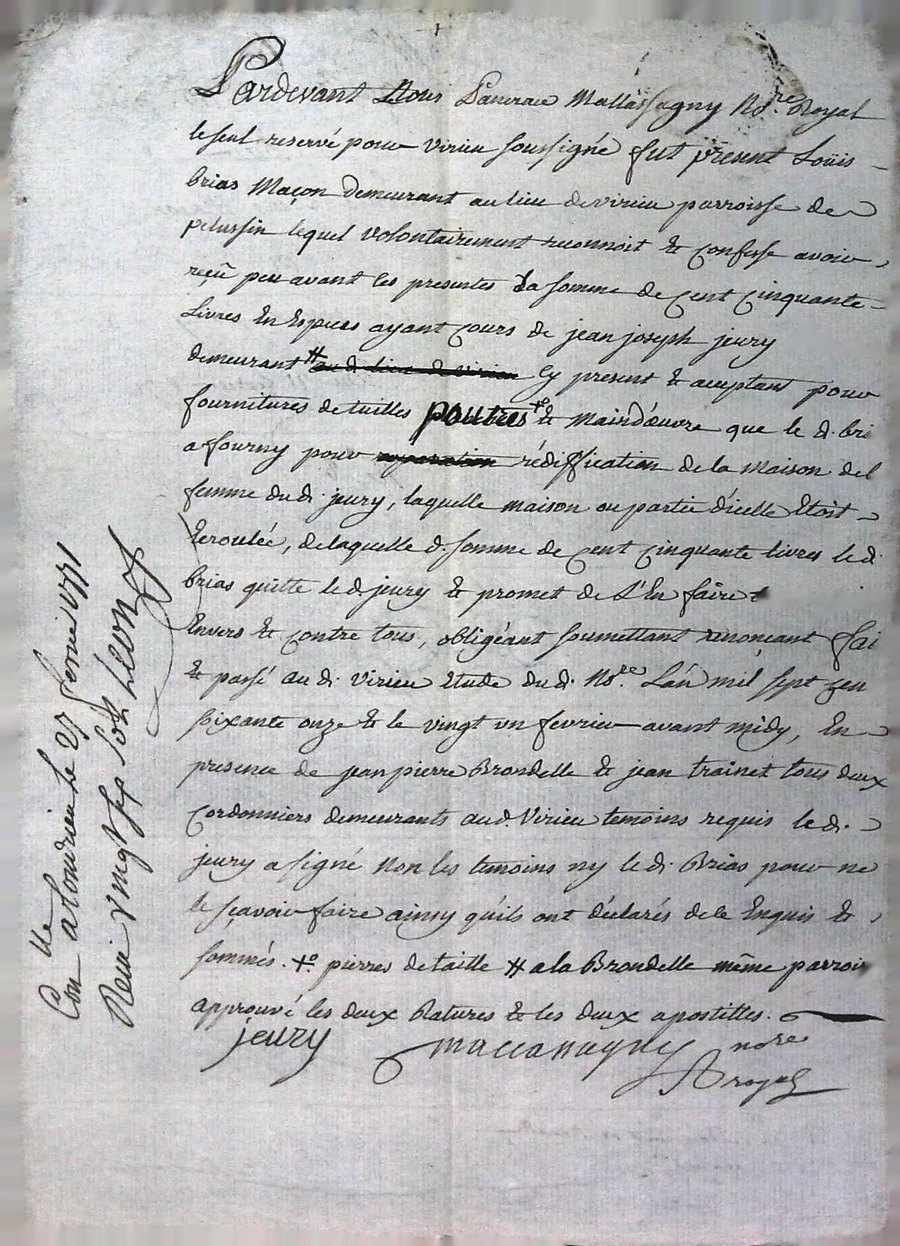 Pardevant Nous Mallassagny No.re Royal
le seul reservé pour virieu soussigné fut present Loüis
brias Maçon demeurant au lieu de virieu parroisse de
pelussin lequel volontairement reconnoit & confesse avoir
reçû peu avant les presentes la somme de cent cinquante
Livres En Especes ayant cours de jean joseph jeury
demeurant # au d. lieu de virieu Cy present & acceptant pour
fournitures de tuilles poutres +o & Maind'œuvre que le d. bri
a fourny pour reparation réediffication de la maison de l
femme du d. jeury, laquelle maison ou partie d'icelle Etoit
Ecroulée, de laquelle d. somme de cent cinquante livres le d.
brias quitte le d. jeury & promet de L'En faire t
Envers & contre tous, obligeant soumettant renonçant fai
& passé au d. Virieu Etude du d. No.re L'an mil sept cen
soixante onze & le vingt un fevrier avant midy, En
presence de jean pierre Brondelle & jean trainet tous deux
Cordonniers demeurants au d. Virieu temoins requis le d.
jeury a signé Non les temoins ny le d. Brias pour ne
le sçavoir faire ainsy qu'ils ont déclarés de ce Enquis &
sommés. +o. pierres de taille # a la Brondelle même parroi
approuvé les deux Ratures & les deux apostilles.
jeury Mallassagny nore
royal
Con.lle a Condrieu le 27 fevrier 1771
Reçu vingt sols